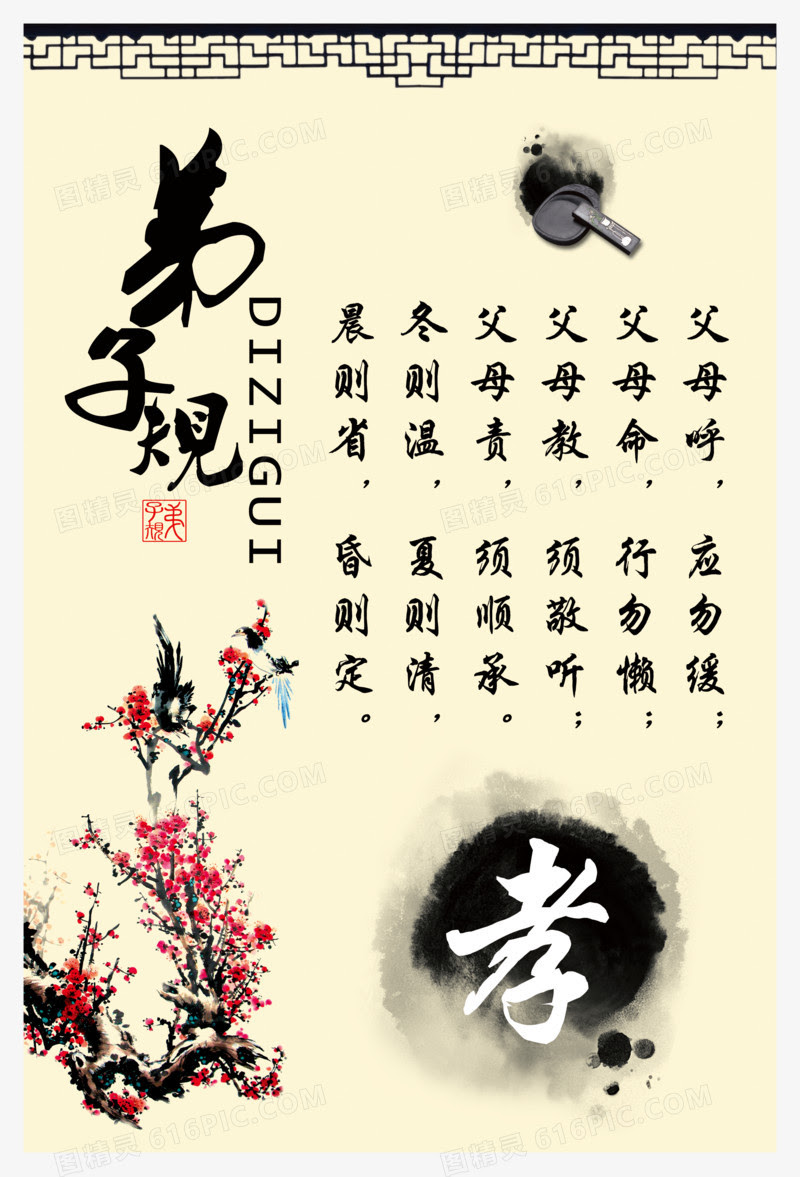 弟子规
DIZIGUI
弟子规
父母呼，应勿缓；
父母命，行勿懒；
父母教，须敬听；
父母责，须顺承。
冬则温，夏则清，
晨则省，昏则定。
孝
图精灵 616PIC.COM